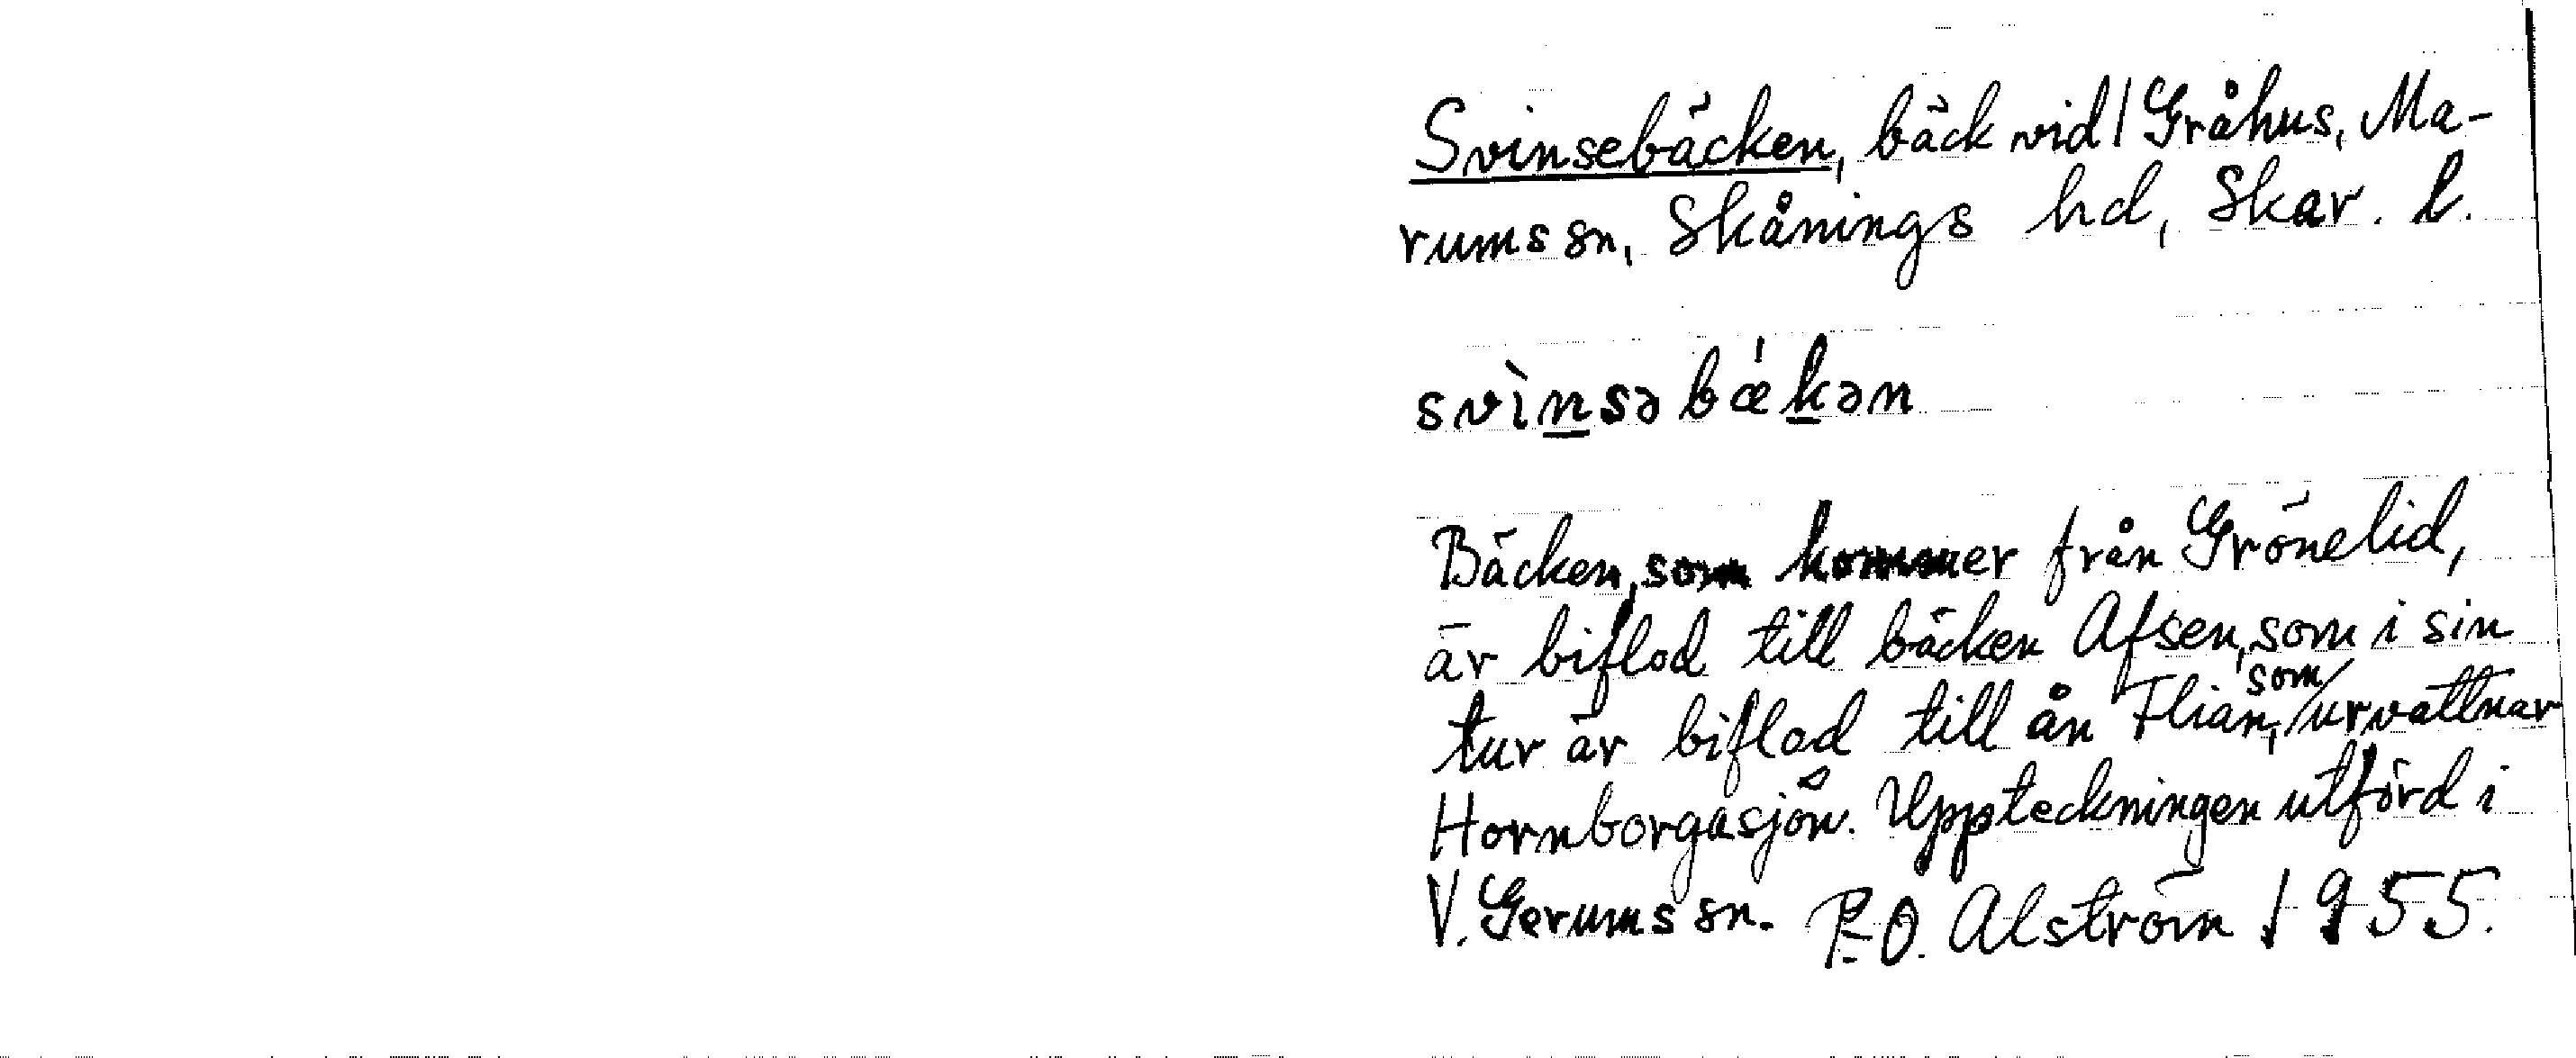 Svinsebäcken, bäck vid / Gråhus, Ma-
rums sn, Skånings hd, Skar. l.
svìnsəbǽkən
Bäcken, som kommer från Grönelid,
är biflod till bäcken Afsen, som i sin
tur är biflod till ån Flian, som urvattnar
Hornborgasjön. Uppteckningen utförd i
V. Gerums sn. P.O. Alström 1955.